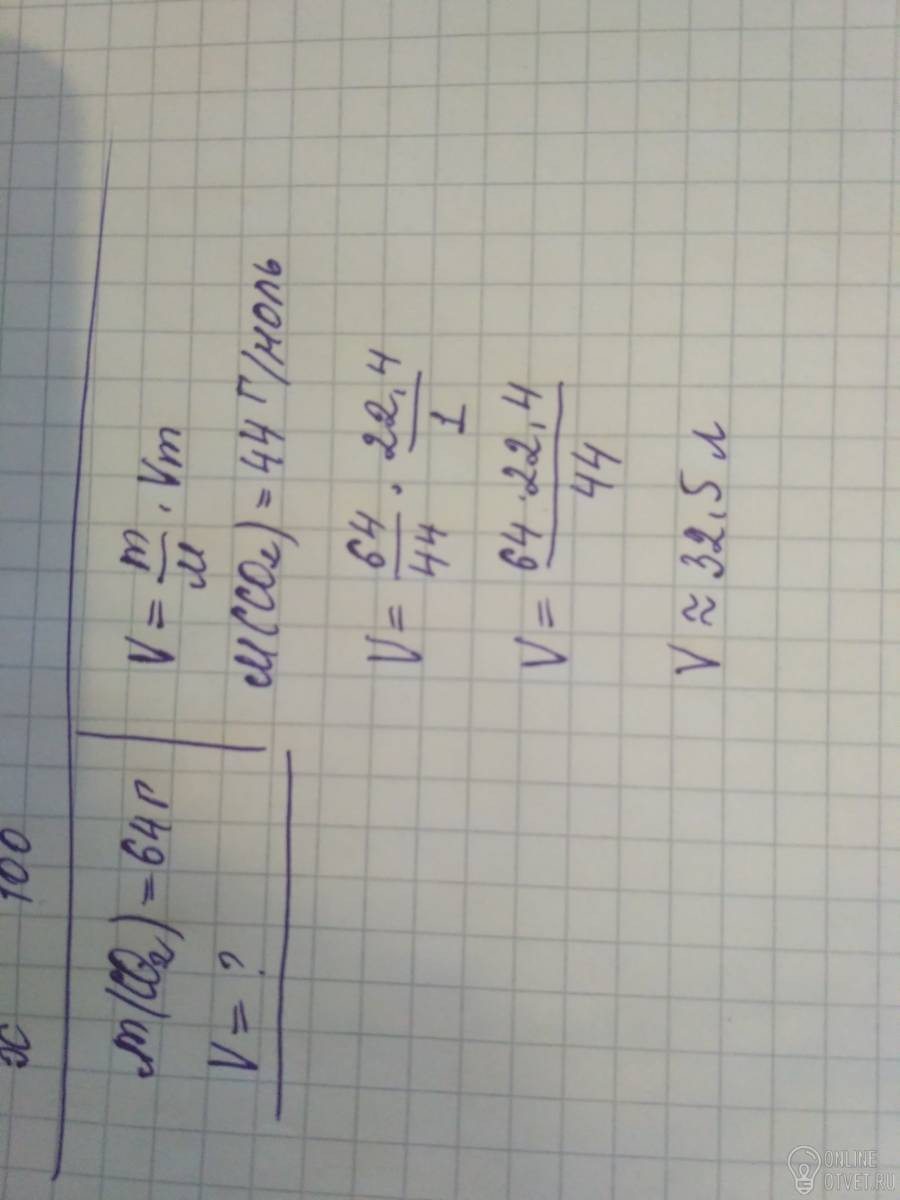 x 100
m(CO₂) = 64 г
V = ?
V = m/M · Vm
M(CO₂) = 44 г/моль
V = 64/44 · 22,4/1
V = 64·22,4/44
V ≈ 32,5 л
ONLINE
OTVET.RU